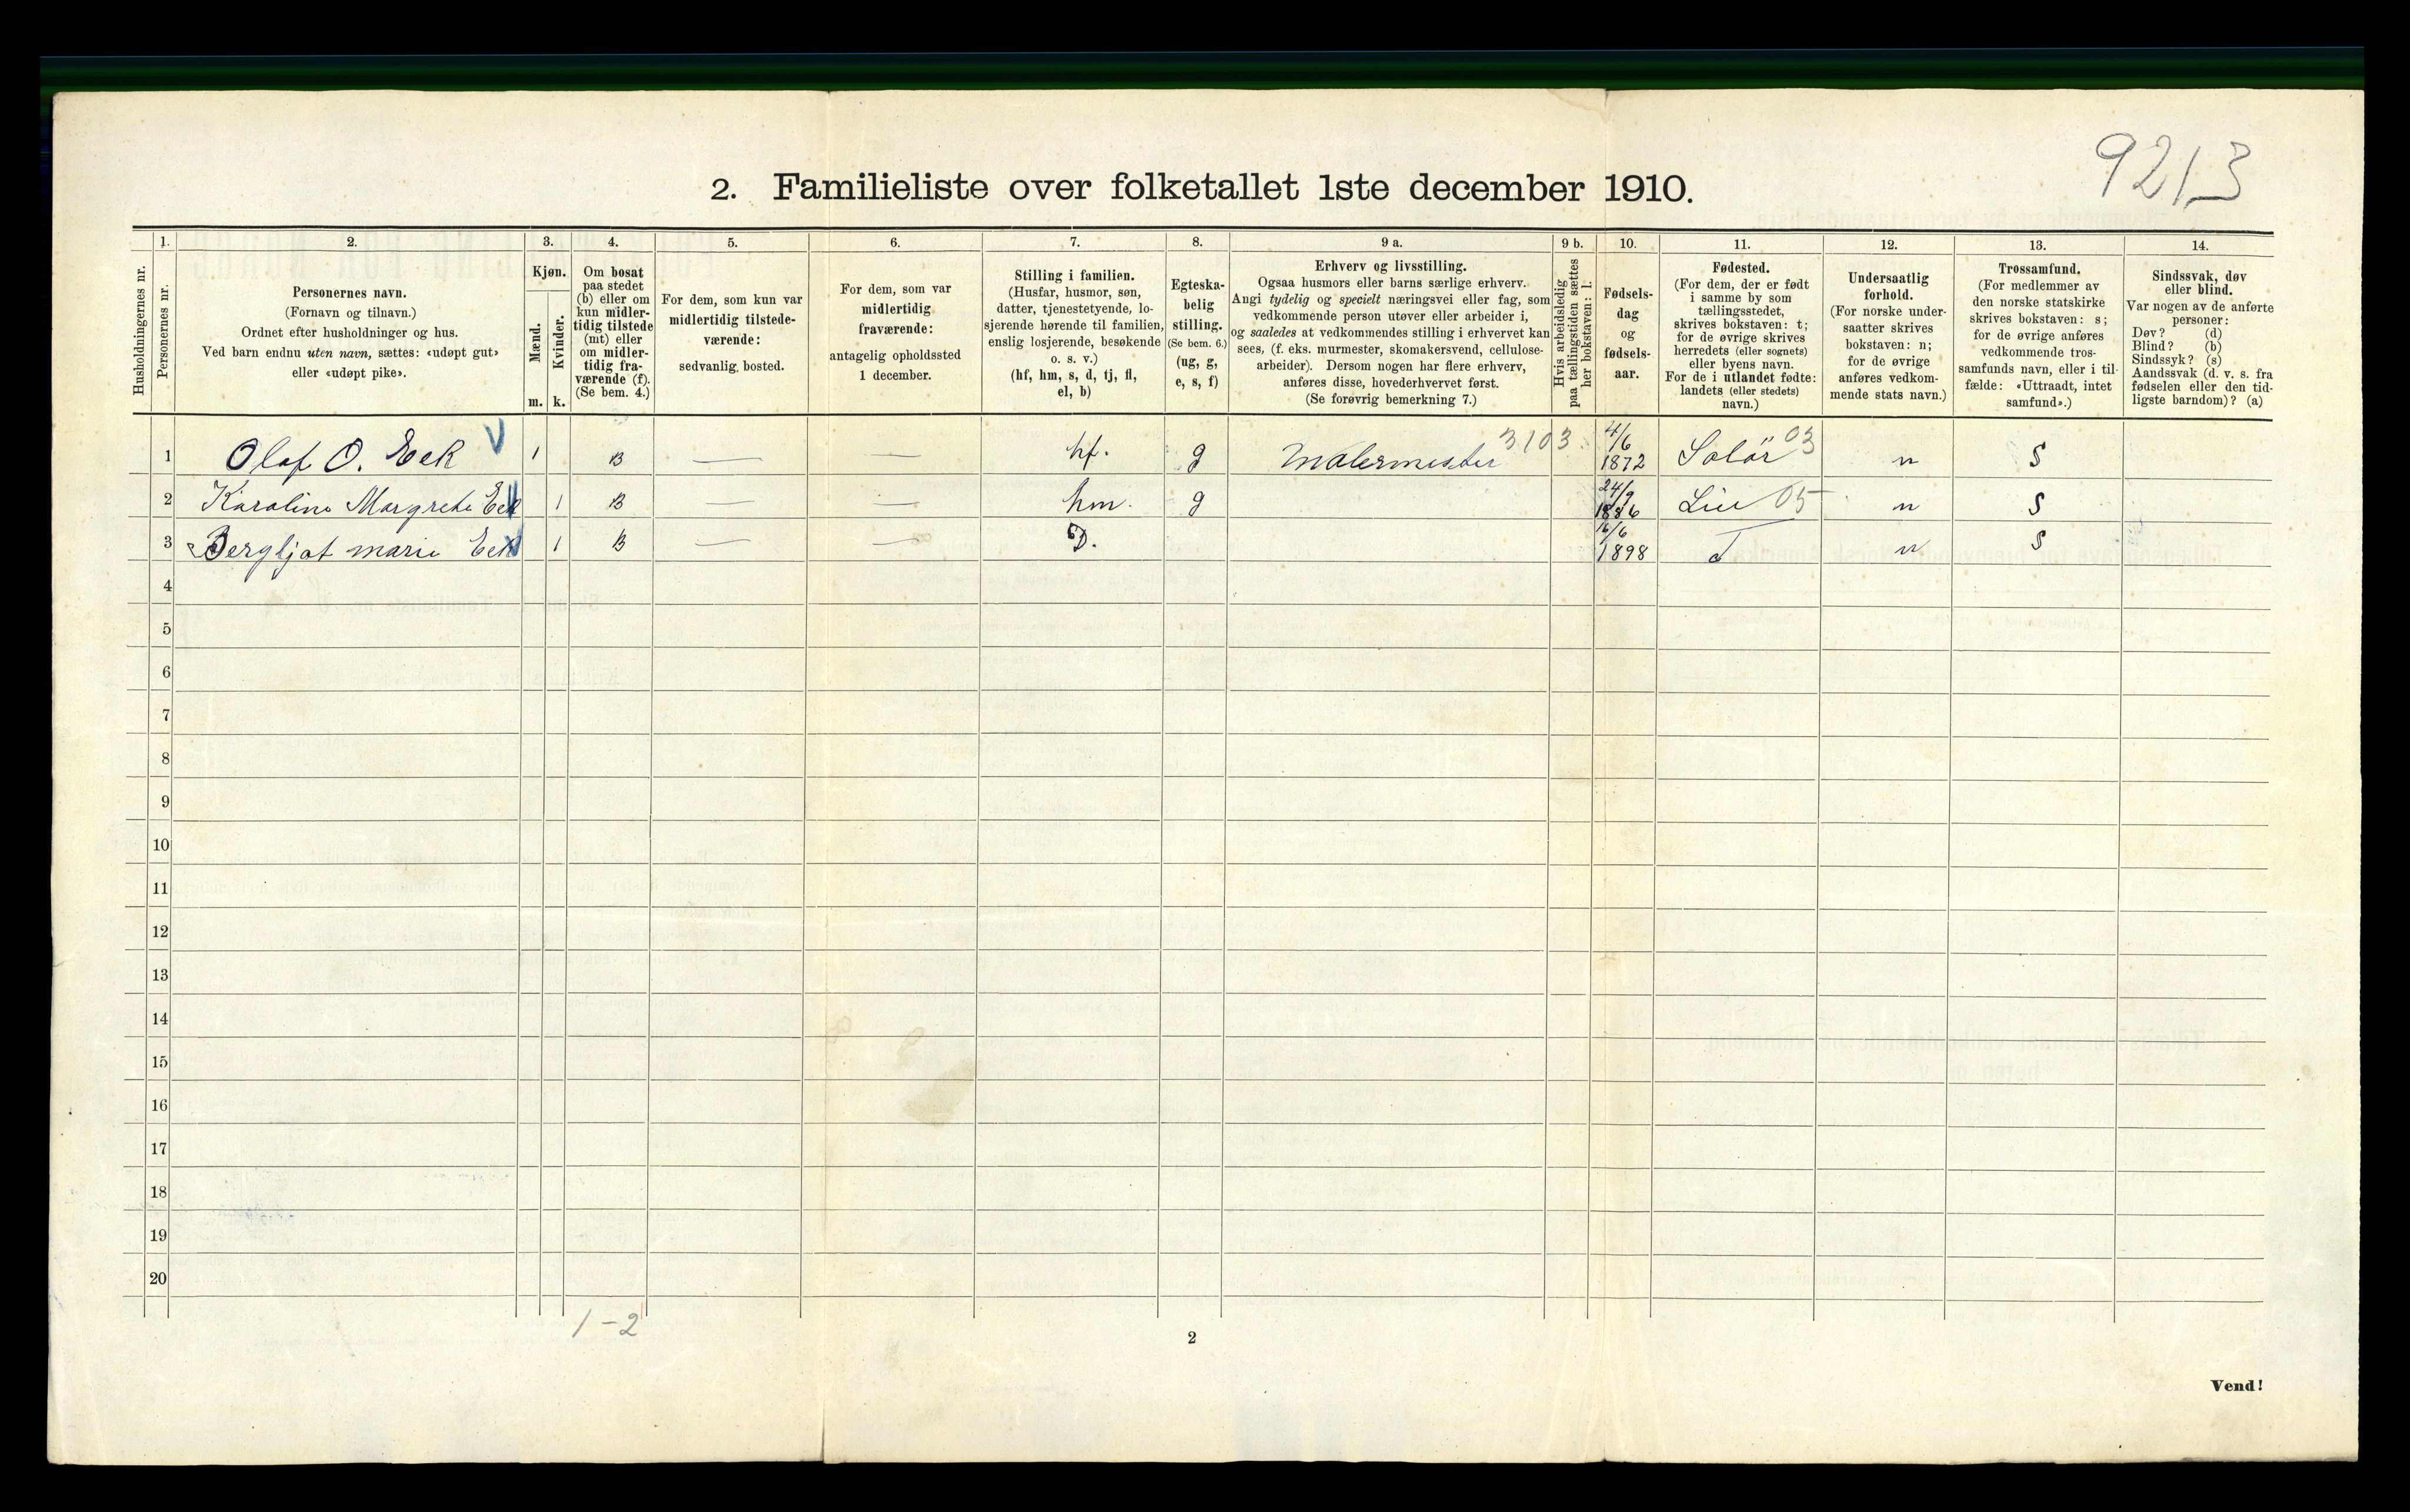 9213
2. Familieliste over folketallet 1ste december 1910.
Husholdningernes nr.
1. Personernes nr.
2. Personernes navn.
(Fornavn og tilnavn.)
Ordnet efter husholdninger og hus.
Ved barn endnu uten navn, sættes: «udøpt gut»
eller «udøpt pike».
3. Kjøn.
Mænd. m.
Kvinder. k.
4. Om bosat
paa stedet
(b) eller om
kun midler-
tidig tilstede
(mt) eller
om midler-
tidig fra-
værende (f).
(Se bem. 4.)
5. For dem, som kun var
midlertidig tilstede-
værende:
sedvanlig bosted.
6. For dem, som var
midlertidig
fraværende:
antagelig opholdssted
1 december.
7. Stilling i familien.
(Husfar, husmor, søn,
datter, tjenestetyende, lo-
sjerende hørende til familien,
enslig losjerende, besøkende
o. s. v.)
(hf, hm, s, d, tj, fl,
el, b)
8. Egteska-
belig
stilling.
(Se bem. 6.)
(ug, g,
e, s, f)
9 a. Erhverv og livsstilling.
Ogsaa husmors eller barns særlige erhverv.
Angi tydelig og specielt næringsvei eller fag, som
vedkommende person utøver eller arbeider i,
og saaledes at vedkommendes stilling i erhvervet kan
sees, (f. eks. murmester, skomakersvend, cellulose-
arbeider). Dersom nogen har flere erhverv,
anføres disse, hovederhvervet først.
(Se forøvrig bemerkning 7.)
9 b. Hvis arbeidsledig
paa tællingstiden sættes
her bokstaven: l.
10. Fødsels-
dag
og
fødsels-
aar.
11. Fødested.
(For dem, der er født
i samme by som
tællingsstedet,
skrives bokstaven: t;
for de øvrige skrives
herredets (eller sognets)
eller byens navn.
For de i utlandet fødte:
landets (eller stedets)
navn.)
12. Undersaatlig
forhold.
(For norske under-
saatter skrives
bokstaven: n;
for de øvrige
anføres vedkom-
mende stats navn.)
13. Trossamfund.
(For medlemmer av
den norske statskirke
skrives bokstaven: s;
for de øvrige anføres
vedkommende tros-
samfunds navn, eller i til-
fælde: «Uttraadt, intet
samfund».)
14. Sindssvak, døv
eller blind.
Var nogen av de anførte
personer:
Døv? (d)
Blind? (b)
Sindssyk? (s)
Aandssvak (d. v. s. fra
fødselen eller den tid-
ligste barndom)? (a)
1 Olaf O. Eek 1 B — — hf. g Malermester 3103 4/6 1872 Solör 03 n S
2 Karoline Margrete Eek 1 B — — hm. g 24/9 Lier 05 n S
3 Bergljot marie Eek 1 B — — D. 16/6 1898 T n S
4
5
6
7
8
9
10
11
12
13
14
15
16
17
18
19
20
1-2
2
Vend!